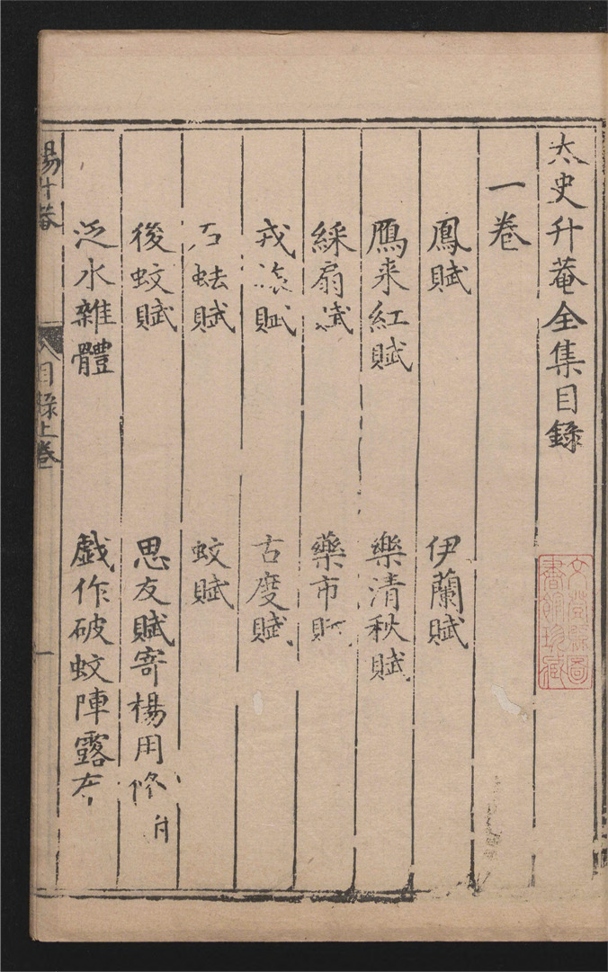 太史升菴全集目錄
一卷
鳳賦 伊蘭賦
鴈来紅賦 樂清秋賦
綵扇賦 藥市賦
戎 賦 古度賦
蚨賦 蚊賦
後蚊賦 思友賦寄楊用修
泛水雜體 戲作破蚊陣露布
目錄上卷
一